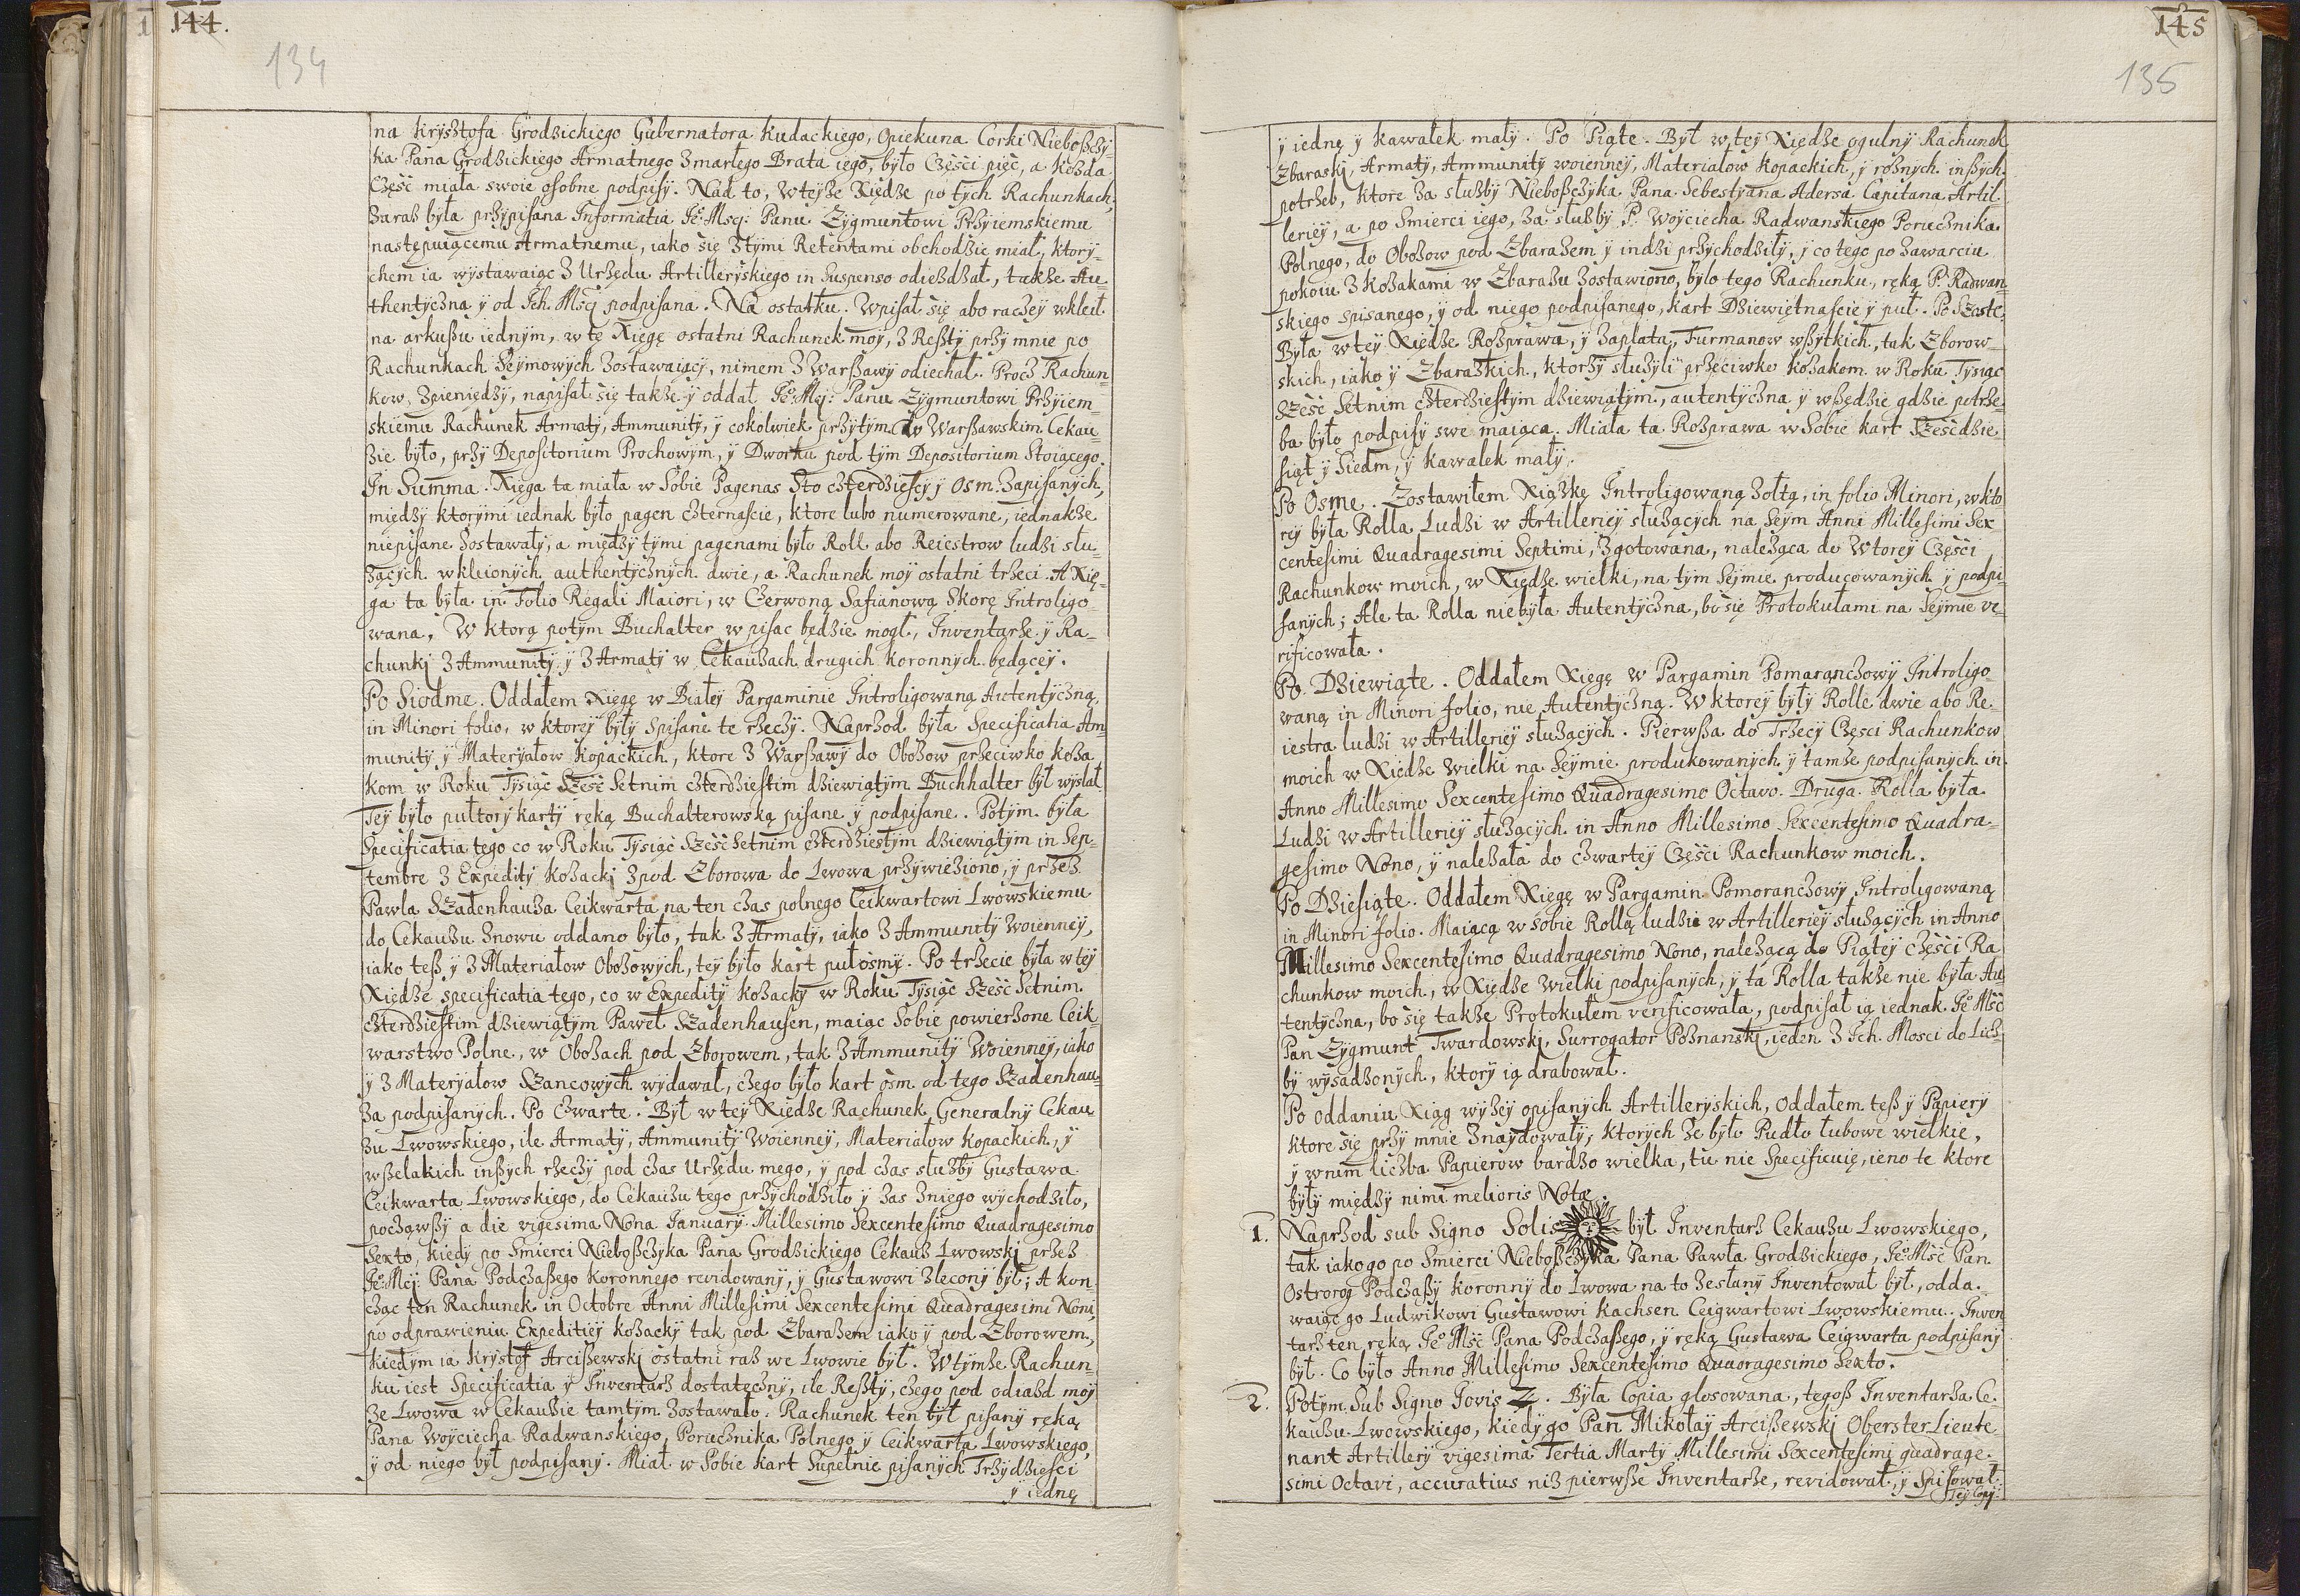 144.
134
na Krysztofa Grodzickiego Gubernatora Kudackiego, Opiekuna Corki Nieboßczy-
ka Pana Grodzickiego Armatnego zmarłego Brata iego, było Częsci pięc, a kozda
Częsc miała swoie osobne podpisy. Nad to, w teyże Xiędze po tych Rachunkach,
zaraz była przypisana Informatia Je° Mscj: Panu Zygmuntowi Przyiemskiemu
następuiącemu Armatnemu, iako się z tymi Retentami obchodzic miał, ktory-
chem ia wystawaiąc z Urzędu Artilleryskiego in Suspenso odiezdzał, także Au-
thentyczna y od Jch. Mscj podpisana. Na ostatku. Wpisał się abo raczey wkleił
na arkußu iednym, w tę Xięgę ostatni Rachunek moy, z Reßty przy mnie po
Rachunkach Seymowych zostawaiącj, nimem z Warßawy odiechał. Procz Rachun-
kow, zpieniędzy, napisał się także y oddał Je° Mcj: Panu Zygmuntowi Przyiem-
skiemu Rachunek Armaty, Ammunity, y cokolwiek przytym w Warßawskim Cekau-
zie było, przy Depositorium Prochowym, y Dworku pod tym Depositorium Stoiącego.
In Summa. Xięga ta miała w Sobie Pagenas Sto czterdziescj y Osm. Zapisanych,
między ktorymi iednak było pagen czternascie, ktore lubo numerowane, iednakże
niepisane zostawały, a między tymi pagenami było Roll abo Reiestrow ludzi słu-
zących wkleionych authentycznych dwie, a Rachunek moy ostatni trzeci. A Xię-
ga ta była in Folio Regali Maiori, w Czerwoną Safianową Skorę Introligo-
wana, W ktorą potym Buchalter wpisac będzie mogł, Inventarze y Ra-
chunkj z Ammunity y z Armaty w Cekauzach drugich koronnych będącey.
Po Siodme. Oddałem Xięgę w Białey Pargaminie Introligowaną Autentyczną,
in Minori folio, w ktorey były spisane te rzeczy. Naprzod była Specificatia Am-
munity y Materyałow kopackich, ktore z Warßawy do Obozow przeciwko koza-
kom w Roku Tysiąc Szesc Setnim czterdziestim dziewiątym Buchhalter był wysłał
Tey było pułtory karty ręką Buchalterowską pisane y podpisane. Potym była
Specificatia tego co w Roku Tysiąc Szesc Setnim czterdziestym dziewiątym in Sep-
tembre z Expedity Kozackj zpod Zborowa do Lwowa przywieziono, y przez
Pawła Szadenhauza Ceikwarta na ten czas polnego Ceikwartowi Lwowskiemu
do Cekauzu znowu oddano było, tak z Armaty, iako z Ammunity Woienney,
iako teß y z Materiałow Obozowych, tey było kart pułosmy. Po trzecie była w tey
Xiędze specificatia tego, co w Expedity kozacky w Roku Tysiąc Szesc Setnim
czterdziestim dziewiątym Paweł Szadenhausen, maiąc Sobie powierzone Ceik-
warstwo Polne, w Obozach pod Zborowem, tak z Ammunity Woienney, iako
y z Materyałow Szancowych wydawał, czego było kart osm od tego Szadenhau-
za podpisanych. Po czwarte. Był w tey Xiędze Rachunek Generalny Cekau
zu Lwowskiego, ile Armaty, Ammunity Woienney, Materiałow kopackich, y
wßelakich inßych rzeczy pod czas Urzędu mego, y pod czas słuzby Gustawa
Ceikwarta Lwowskiego, do Cekauzu tego przychodziło y zas zniego wychodziło,
począwßy a die vigesima Nona January Millesimo Sexcentesimo Quadragesimo
Sexto, kiedy po Smierci Nieboßczyka Pana Grodzickiego Cekauz Lwowskj przez
Je° Mcj Pana Podczaßego koronnego revidowany, y Gustawowi zlecony był; A kon
cząc ten Rachunek in Octobre Anni Millesimi Sexcentesimi Quadragesimi Noni,
po odprawieniu Expeditiey kozacky tak pod Zbarazem iako y pod Zborowem,
kiedym ia Krystof Arcißewskj ostatni raz we Lwowie był. W tymze Rachun-
ku iest Specificatia y Inventarz dostateczny, ile Reßty, czego pod odiazd moy
ze Lwowa w Cekauzie tamtym zostawało. Rachunek ten był pisany ręką
Pana Woyciecha Radwanskiego, Porucznika Polnego y Ceikwarta Lwowskiego,
y od niego był podpisany. Miał w Sobie kart Supełnie pisanych Trzydziesci
y iednę
145
135
y iednę y kawałek mały. Po Piąte. Był w tey Xiędze ogulny Rachunek
Zbaraskj, Armaty, Ammunity woienney, Materiałow kopackich, y roznych inßych
potrzeb, ktore za słuzby Nieboßczyka Pana Sebestyana Adersa Capitana Artil-
leriey, a po Smierci iego, za słuzby P. Woyciecha Radwanskiego Porucznika
Polnego, do Obozow pod Zbarazem y indzi przychodziły, y co tego po zawarciu
pokoiu z Kozakami w Zbarazu zostawiono, było tego Rachunku, ręką P. Radwan-
skiego spisanego, y od niego podpisanego, kart Dziewiętnascie y puł. Po Szoste.
Była w tey Xiędze Rozprawa, y zapłata, Furmanow wßytkich, tak Zborow-
skich, iako y Zbarazkich, ktorzy słuzyli przeciwko kozakom w Roku Tysiąc
Szesc Setnim czterdziestym dziewiątym, autentyczna y wßędzie gdzie potrze-
ba było podpisy swe maiąca. Miała ta Rozprawa w Sobie kart Szescdzie-
siąt y Siedm, y kawałek mały.
Po Osme. Zostawiłem Xiązkę Introligowaną zołtą, in folio Minori, w kto
rey była Rolla Ludzi w Artilleriey słuzących na Seym Anni Millesimi Sex
centesimi Quadragesimi Septimi, zgotowana, naleząca do Wtorey Częsci
Rachunkow moich, w Xiędze wielki, na tym Seymie producowanych y podpi-
sanych; Ale ta Rolla niebyła Autentyczna, bo się Protokułami na Seymie ve-
rificowała.
Po Dziewiąte. Oddałem Xięgę w Pargamin Pomaranczowy Introligo-
waną in Minori folio, nie Autentyczną. W ktorey były Rolle dwie abo Re-
iestra ludzi w Artilleriey słuzących. Pierwßa do Trzecy Częsci Rachunkow
moich w Xiędze Wielki na Seymie produkowanych y tamze podpisanych in
Anno Millesimo Sexcentesimo Quadragesimo Octavo. Druga Rolla była
Ludzi w Artilleriey słuzących in Anno Millesimo Sexcentesimo Quadra-
gesimo Nono, y nalezała do czwartey Częsci Rachunkow moich.
Po Dziesiąte. Oddałem Xięgę w Pargamin Pomoranczowy Introligowaną
in Minori folio. Maiącą w Sobie Rollą ludzi w Artilleriey słuzących in Anno
Millesimo Sexcentesimo Quadragesimo Nono, nalezącą do Piątey częsci Ra
chunkow moich, w Xiędze Wielki podpisanych, y ta Rolla także nie była Au-
tentyczna, bo się także Protokułem verificowała, podpisał ią iednak Je° Msc
Pan Zygmunt Twardowskj, Surrogator Poznanskj, ieden z Jch. Mosci do Licz-
by wysadzonych, ktory ią drabował.
Po oddaniu Xiąg wyzey opisanych Artilleryskich, Oddałem teß y Papiery
ktore się przy mnie znaydowały, ktorych ze było Pudło łubowe wielkie,
y wnim liczba Papierow bardzo wielka, tu nie Specificuię, ieno te ktore
były między nimi melioris Notæ.
1. Naprzod sub Signo Solis ☉ był Inventarz Cekauzu Lwowskiego,
tak iako go po Smierci Nieboßczyka Pana Pawła Grodzickiego, Je° Msc Pan
Ostrorog Podczaßy koronny do Lwowa na to zesłany Inventował był, odda-
waiąc go Ludwikowi Gustawowi Kachsen Ceigwartowi Lwowskiemu. Inven
tarz ten ręką Je° Msc Pana Podczaßego, y ręką Gustawa Ceigwarta podpisany
był. Co było Anno Millesimo Sexcentesimo Quadragesimo Sexto.
2. Potym. Sub Signo Jovis ♃. Była Copia glosowana, tegoß Inventarza Ce-
kauzu Lwowskiego, kiedy go Pan Mikołay Arcißewskj Oberster Lieute-
nant Artillery vigesima Tertia Marty Millesimi Sexcentesimi quadrage-
simi Octavi, accuratius niz pierwße Inventarze, revidował, y Spisował.
Tey Copij